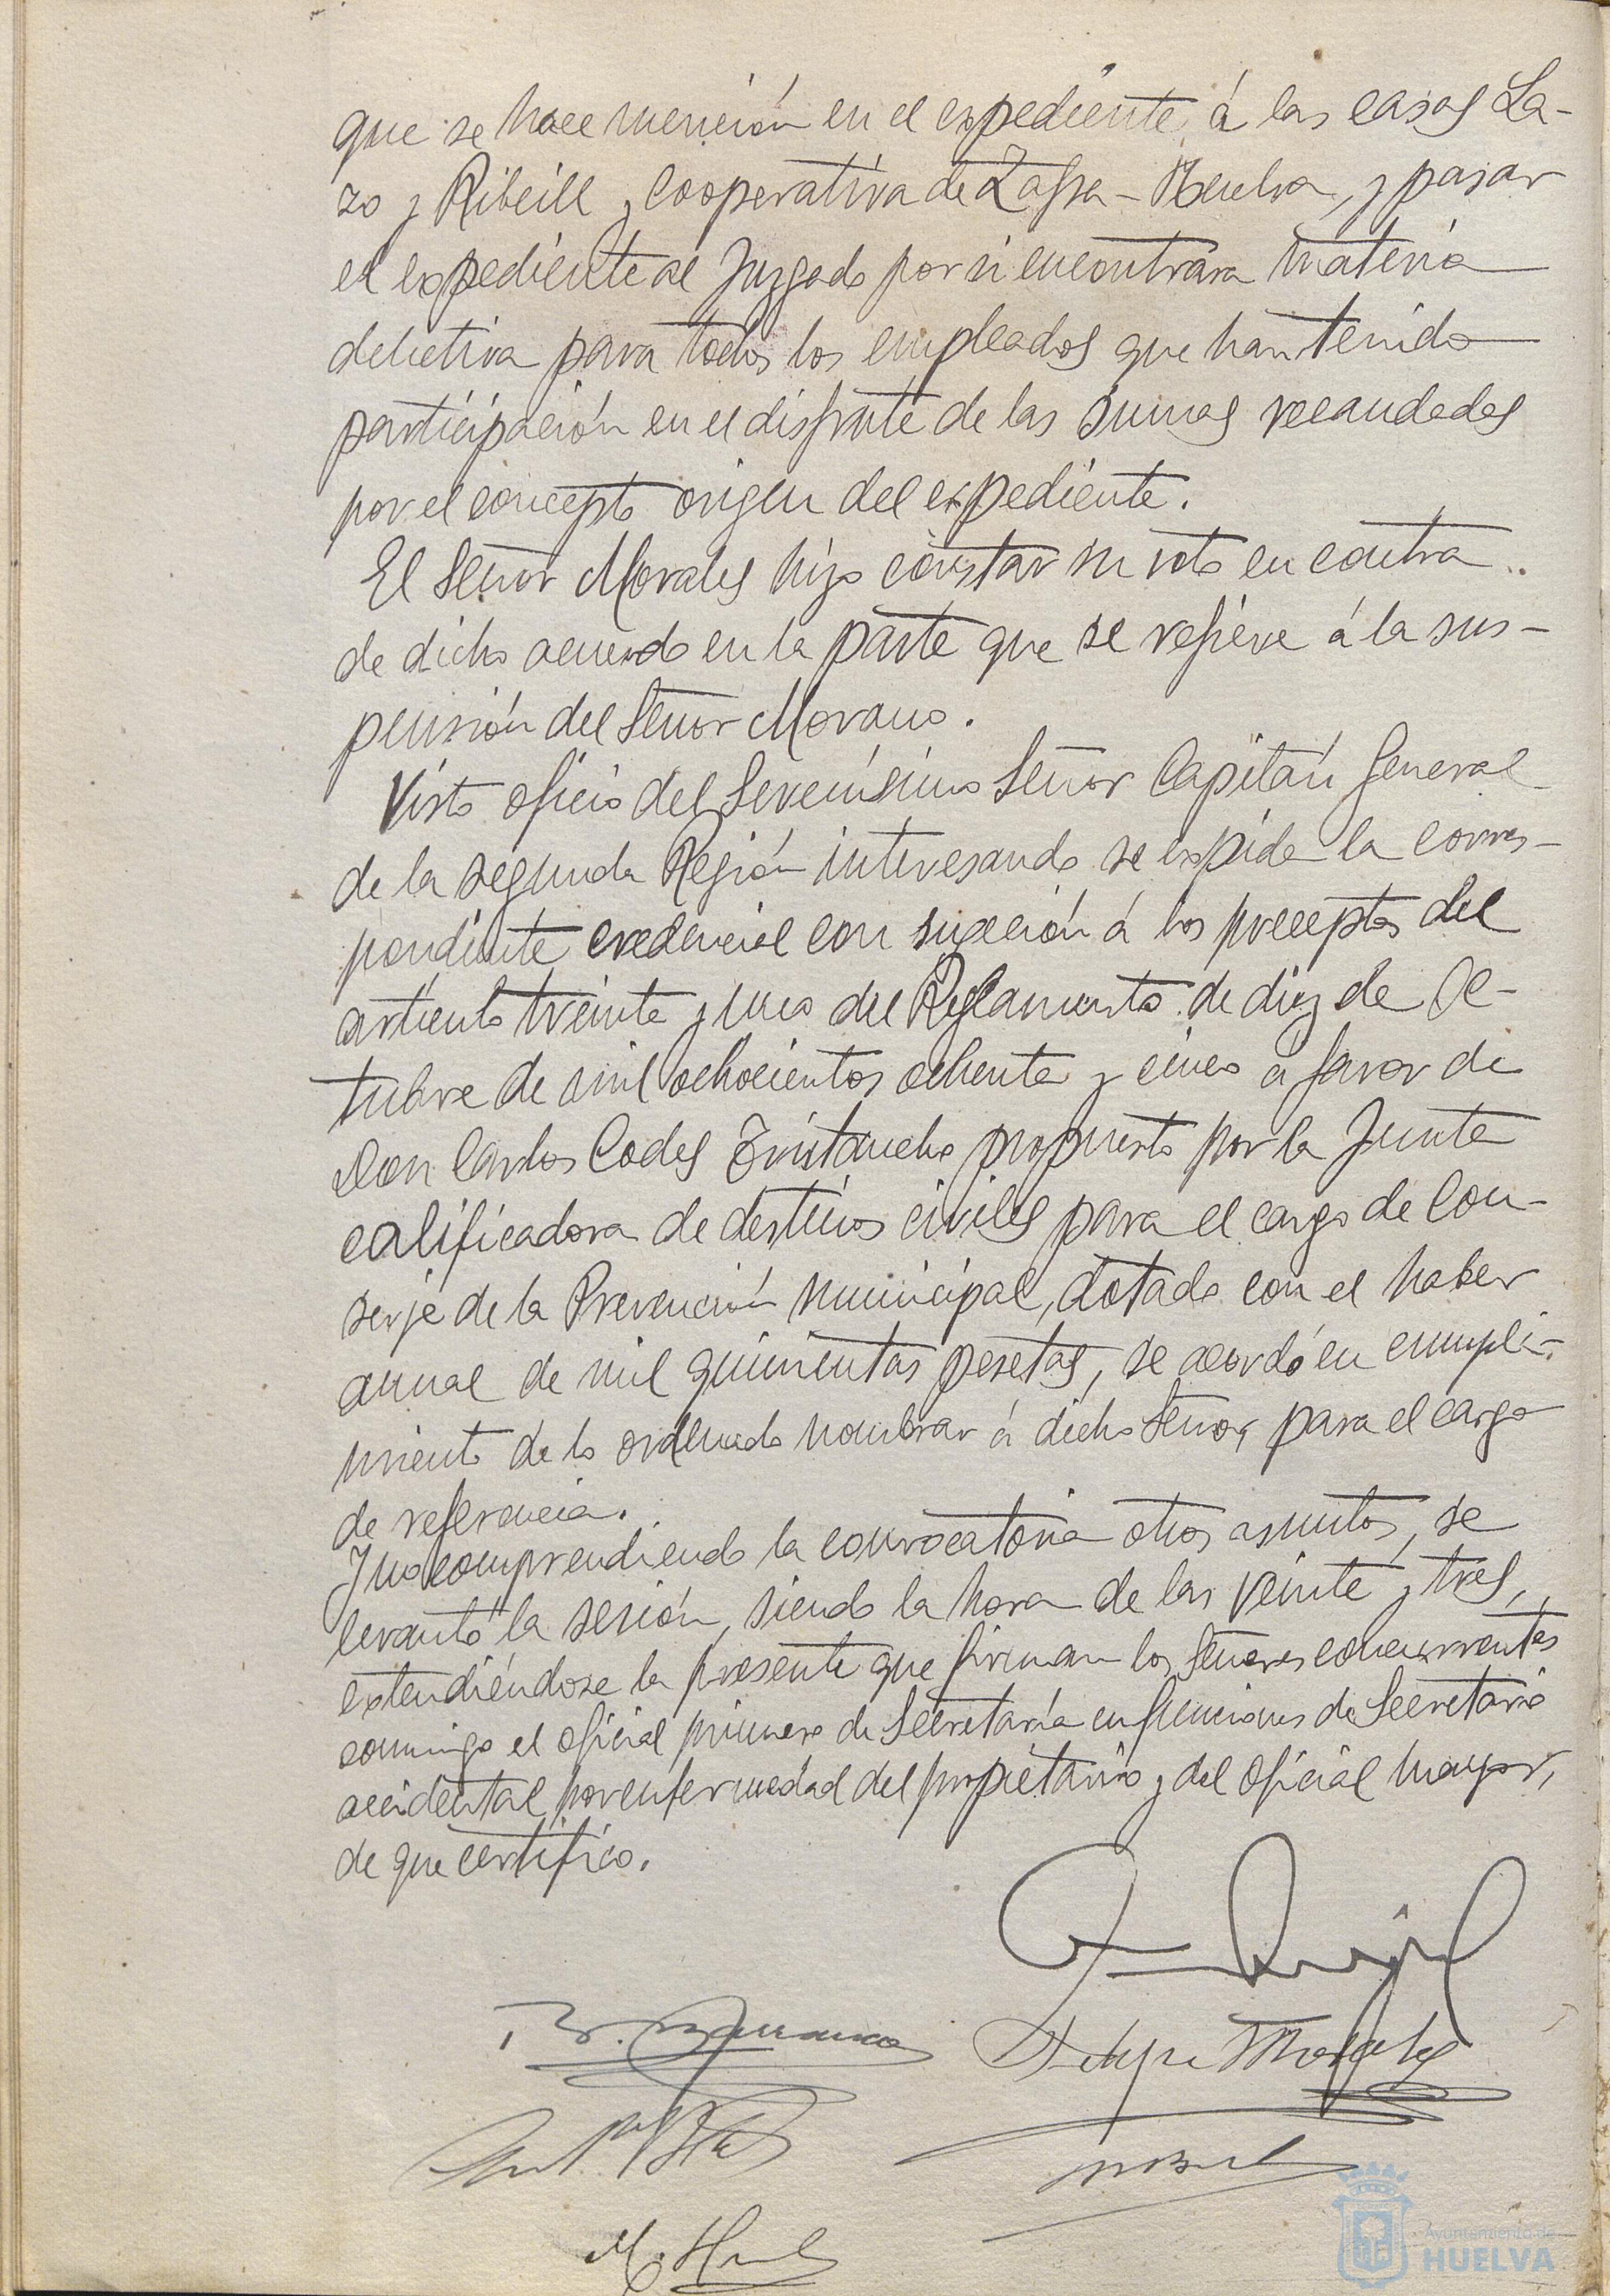 que se hace mención en el expediente, á las casas La-
zo y Ribeill y Cooperativa de Zafra-Huelva, y pasar
el expediente al Juzgado por si encontrára materia
delictiva para todos los empleados que han tenido
participación en el disfrute de las sumas recaudadas
por el concepto origen del expediente.
El Señor Morales hizo constar su voto en contra
de dicho acuerdo en la parte que se refiere á la sus-
pensión del Señor Morano.
Visto oficio del Serenísimo Señor Capitán General
de la segunda Región interesando se expida la corres-
pondiente credencial con sujeción á los preceptos del
artículo treinta y uno del Reglamento de diez de Oc-
tubre de mil ochocientos ochenta y cinco á favor de
Don Carlos Codes Tristancho propuesto por la Junta
calificadora de destinos civiles para el cargo de Con-
serje de la Prevención municipal, dotado con el haber
anual de mil quinientas pesetas, se acordó en cumpli-
miento de lo ordenado nombrar á dicho Señor, para el cargo
de referencia.
Y no comprendiendo la convocatoria otros asuntos, se
levantó la sesión, siendo la hora de las veinte y tres,
extendiéndose la presente que firman los Señores concurrentes
conmigo el oficial primero de Secretaría en funciones de Secretario
accidental por enfermedad del propietario y del oficial mayor,
de que certifico.
Felipe Morales
Ayuntamiento de
HUELVA